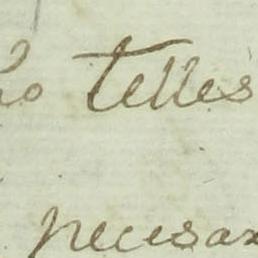 ho Telles
necesar